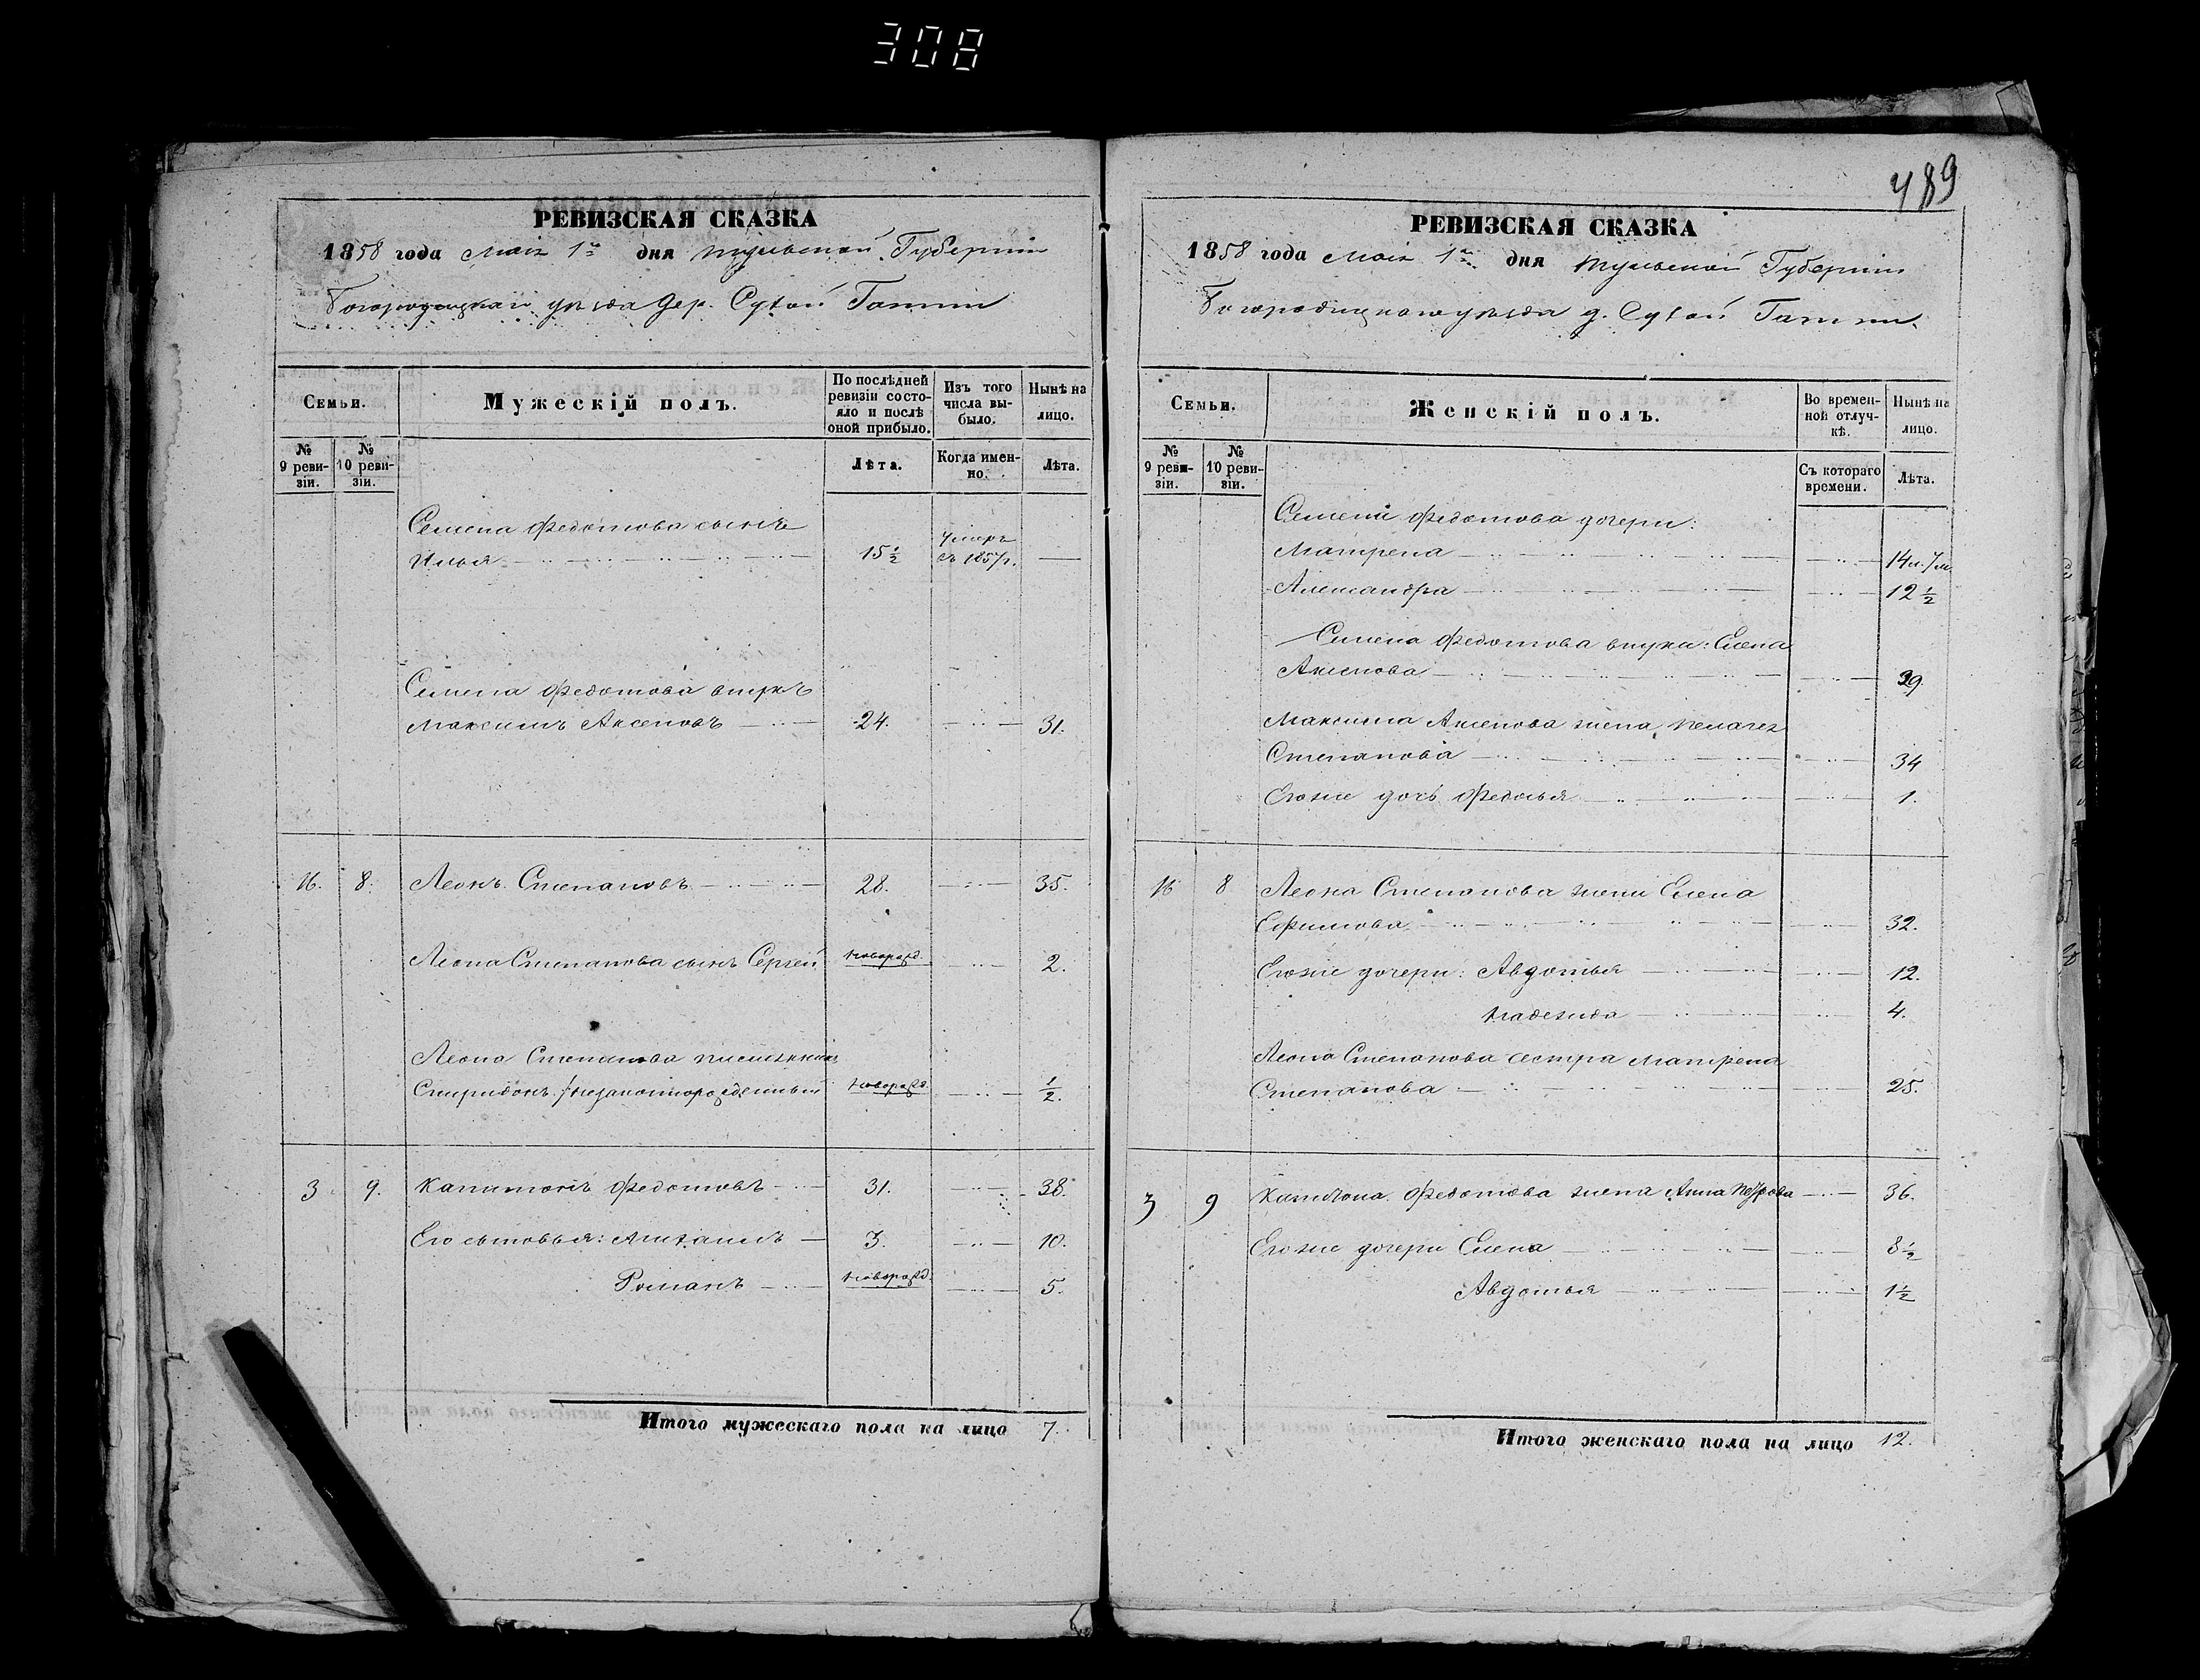 308
489
РЕВИЗСКАЯ СКАЗКА
1858 года Маія 1го дня Тульской Губерніи
Богородицкаго уѣзда дер. Сухой Гатти
Семьи.
Мужескій полъ.
По послѣдней ревизіи состояло и послѣ оной прибыло.
Изъ того числа выбыло.
Нынѣ на лицо.
№ 9 ревизіи.
№ 10 ревизіи.
Лѣта.
Когда именно.
Лѣта.
Семена Федотова сынъ
Илья 15 1/2 Умеръ въ 1857 г.
Семена Федотова внукъ
Максимъ Аксеновъ 24. 31.
16. 8. Леонъ Степановъ 28. 35.
Леона Степанова сынъ Сергей новорожд. 2.
Леона Степанова племянникъ
Спиридонъ /незаконнорожденный новорожд. 1/2.
3 9. Капитонъ Федотовъ 31. 38.
Его сыновья: Михаилъ 3. 10.
Романъ новорожд. 5.
Итого мужескаго пола на лицо 7.
РЕВИЗСКАЯ СКАЗКА
1858 года Маія 1го дня Тульской Губерніи
Богородицкаго уѣзда д. Сухой Гатти.
Семьи.
Женскій полъ.
Во временной отлучкѣ.
Нынѣ на лицо.
№ 9 ревизіи.
№ 10 ревизіи.
Съ котораго времени.
Лѣта.
Семена Федотова дочери:
Матрена 14 л. 7 м.
Александра 12 1/2
Семена Федотова внука: Елена
Аксенова 29.
Максима Аксенова жена Пелагея
Степанова 34
Его же дочь Федосья 1.
16 8 Леона Степанова жена Елена
Ефимова 32.
Его же дочери: Авдотья 12.
Надежда 4.
Леона Степанова сестра Матрена
Степанова 25.
3 9 Капитона Федотова жена Анна Петрова 36.
Его же дочери Елена 8 1/2
Авдотья 1 1/2
Итого женскаго пола на лицо 12.